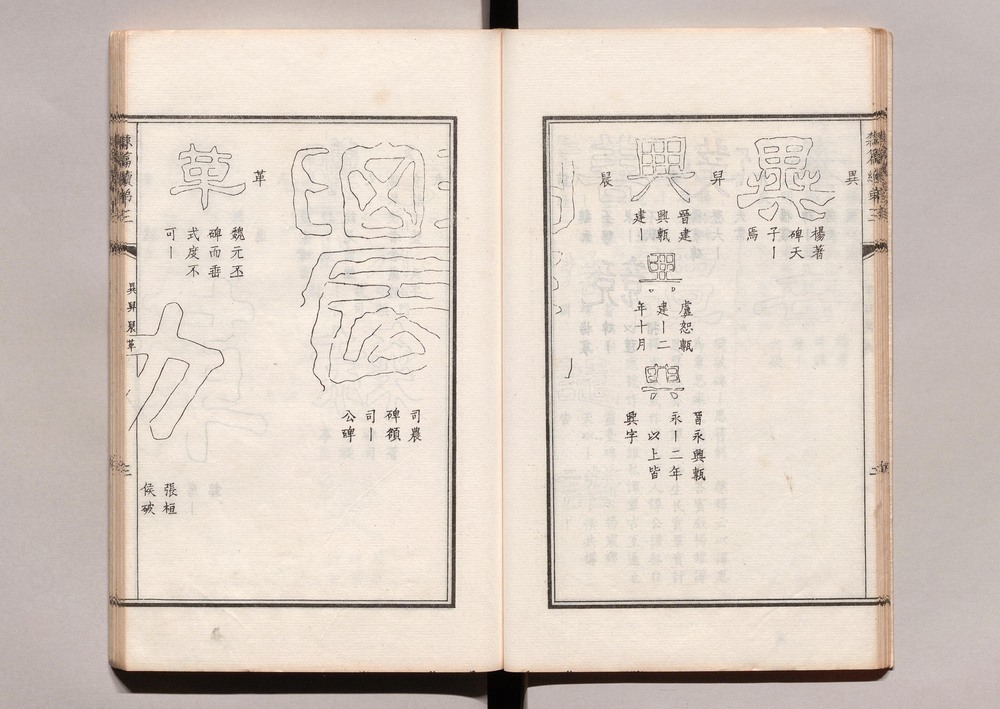 異
異
楊著
碑天
子丨
焉
舁
興
晉建
興甎
建丨
興
盧恕甎
建丨二
年十月
興
晉永興甎
永丨二年
以上皆
興字
晨
農
司農
碑額
司丨
公碑
革
革
魏元丕
碑而垂
式度不
可丨
張桓
侯破
隸篇續第三
異舁晨革